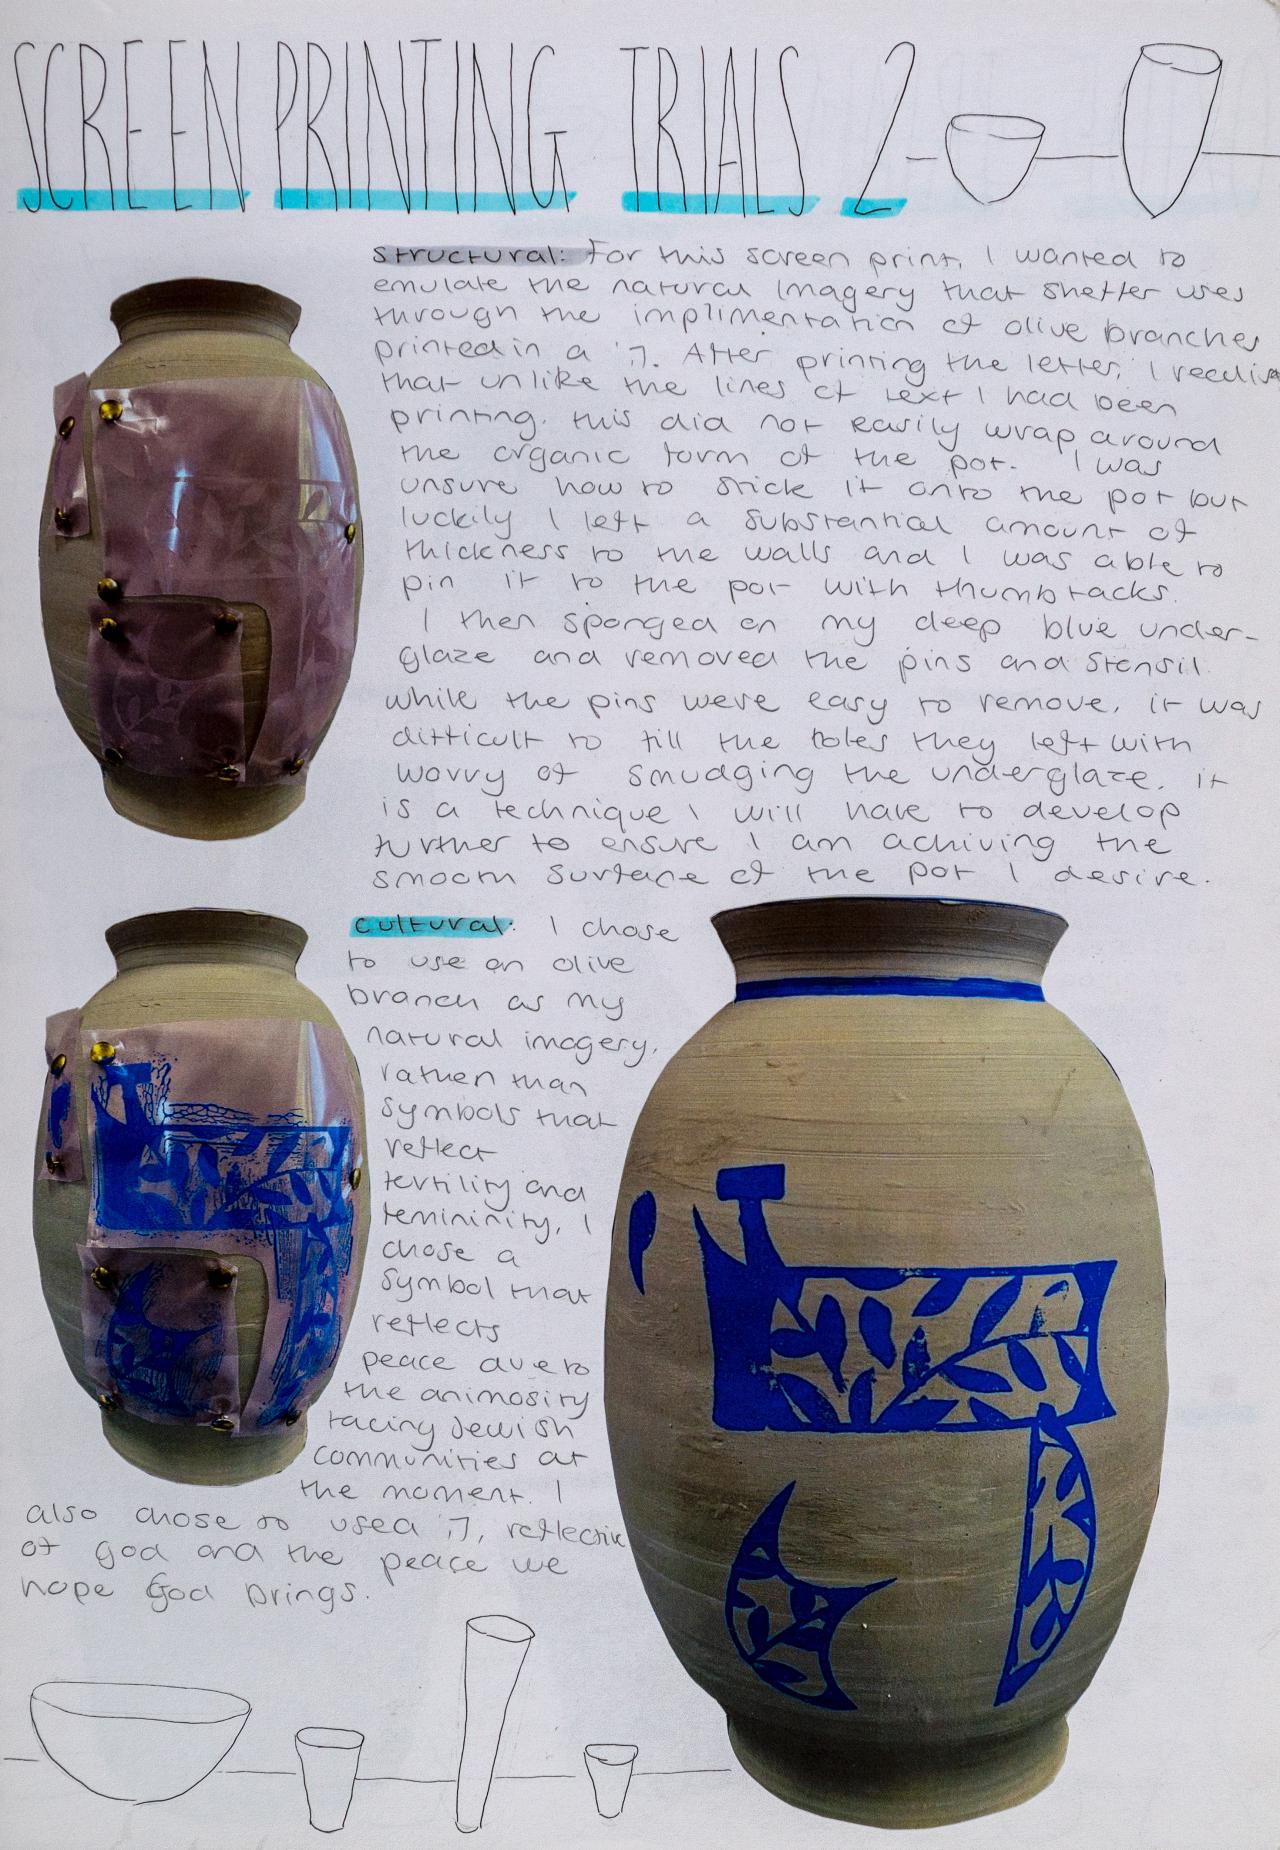 SCREEN PRINTING TRIALS 2
structural: For this screen print, I wanted to
emulate the natural imagery that Shetter uses
through the implimentation of olive branches
printed in a ';ק. After printing the letter, I realise
that unlike the lines of text I had been
printing, this did not easily wrap around
the organic form of the pot. I was
unsure how to stick it onto the pot but
luckily I left a substantial amount of
thickness to the walls and I was able to
pin it to the pot with thumbtacks.
I then sponged on my deep blue under-
glaze and removed the pins and stensil.
while the pins were easy to remove, it was
difficult to fill the holes they left with
worry of smudging the underglaze. it
is a technique I will have to develop
further to ensure I am achiving the
smooth surface of the pot I desire.
cultural: I chose
to use an olive
branch as my
natural imagery,
rather than
symbols that
reflect
fertility and
femininity, I
chose a
symbol that
reflects
peace due to
the animosity
facing Jewish
communities at
the moment. I
also chose to use a ';ק, reflective
of god and the peace we
hope God brings.
'ק